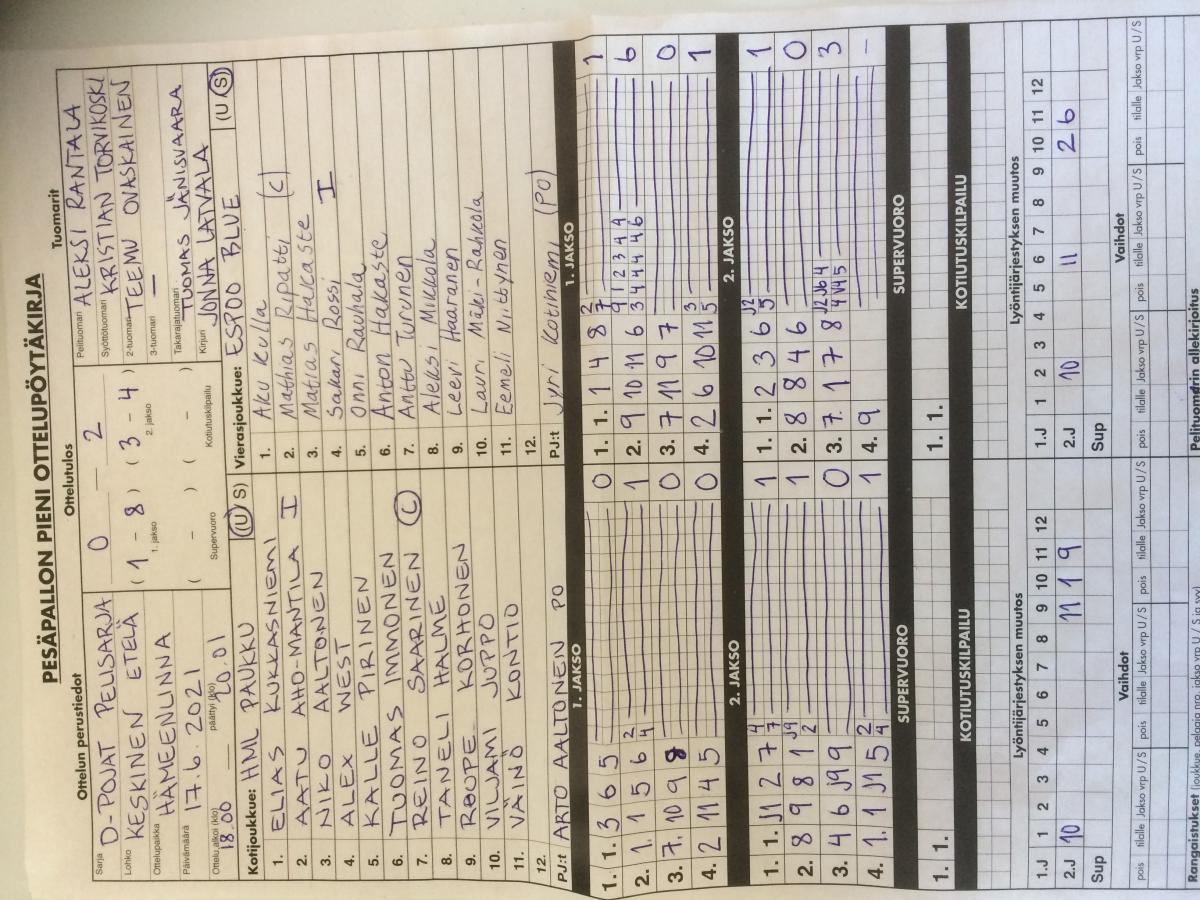 PESÄPALLON PIENI OTTELUPÖYTÄKIRJA
Ottelun perustiedot
Sarja D-POJAT PELISARJA
Lohko KESKINEN ETELÄ
Ottelupaikka HÄMEENLINNA
Päivämäärä 17.6.2021
Ottelu alkoi (klo) 18.00 päättyi (klo) 20.01
Ottelutulos
0 — 2
( 1 - 8 ) ( 3 - 4 )
1. jakso 2. jakso
( - ) ( - )
Supervuoro Kotiutuskilpailu
Tuomarit
Pelituomari ALEKSI RANTALA
Syöttötuomari KRISTIAN TORVIKOSKI
2-tuomari TEEMU OVASKAINEN
3-tuomari —
Takarajatuomari TUOMAS JÄNISVAARA
Kirjuri JONNA LATVALA
Kotijoukkue: HML PAUKKU (U S)
1. ELIAS KUKKASNIEMI
2. AATU AHO-MANTILA I
3. NIKO AALTONEN
4. ALEX WEST
5. KALLE PIRINEN
6. TUOMAS IMMONEN
7. REINO SAARINEN (C)
8. TANELI HALME
9. ROOPE KORHONEN
10. VILJAMI JUPPO
11. VÄINÖ KONTIO
12.
PJ:t ARTO AALTONEN PO
Vierasjoukkue: ESPOO BLUE (U S)
1. Aku Kulla
2. Mathias Ripatti (C)
3. Matias Hakaste
4. Sakari Rossi I
5. Onni Rauhala
6. Anton Hakaste
7. Anttu Turunen
8. Aleksi Mikkola
9. Leevi Haaranen
10. Lauri Mäki-Rahkola
11. Eemeli Niittynen
12.
PJ:t Jyri Kotiniemi (PO)
1. JAKSO
1. 1. 3 6 5 0
2. 1. 1 5 6 2 4 1
3. 7. 10 9 9 8 0
4. 2 11 4 5 0
1. JAKSO
1. 1. 1 4 8 2 7 1
2. 9 10 11 6 9 1 2 3 4 4 3 4 4 4 4 6 6
3. 7 11 9 7 0
4. 2 6 10 11 3 5 1
2. JAKSO
1. 1. J1 1 2 7 4 7 1
2. 8 9 8 1 J9 2 1
3. 4 6 J9 9 0
4. 1. 1 J1 5 2 4 1
2. JAKSO
1. 1. 2 3 6 J2 5 1
2. 8 8 4 6 0
3. 7. 1 7 8 3
4. 9 –
SUPERVUORO
1. 1.
SUPERVUORO
1. 1.
KOTIUTUSKILPAILU
KOTIUTUSKILPAILU
Lyöntijärjestyksen muutos
1 2 3 4 5 6 7 8 9 10 11 12
1.J
2.J 10 11 1 9
Sup
Lyöntijärjestyksen muutos
1 2 3 4 5 6 7 8 9 10 11 12
1.J
2.J 10 11 2 6
Sup
Vaihdot
pois tilalle Jakso vrp U/S pois tilalle Jakso vrp U/S pois tilalle Jakso vrp U/S
Vaihdot
pois tilalle Jakso vrp U/S pois tilalle Jakso vrp U/S pois tilalle Jakso vrp U/S
Rangaistukset (joukkue, pelaaja nro, jakso vrp U / S ja syy)
Pelituomarin allekirjoitus